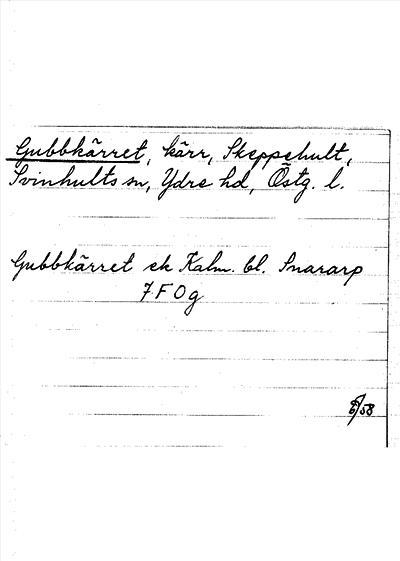 Gubbkärret, kärr, Skeppshult,
Svinhults sn, Ydre hd, Östg. l.
Gubbkärret ek Kalm. bl. Snararp
7 F 0 g
6/58